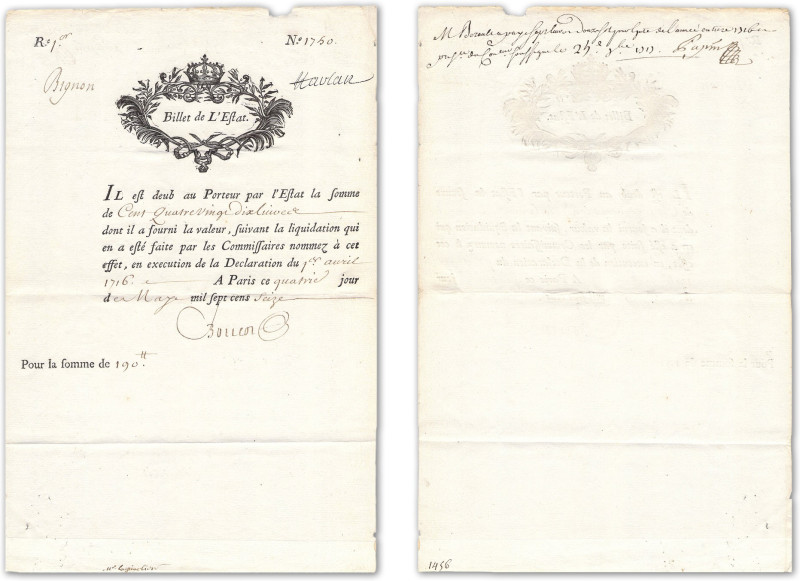 Re 1.er No 1750.
Bignon Harlan
Billet de L'Estat.
IL est deub au Porteur par l'Estat la somme
de Cent Quatre vingt dix livres
dont il a fourni la valeur, suivant la liquidation qui
en a esté faite par les Commissaires nommez à cet
effet, en execution de la Declaration du 1er avril
1716. A Paris ce quatrie jour
de May mil sept cens seize
Pour la somme de 190tt
3
M Bereale a payé
de l'année entiere 1716
le 24e 1717. Papin
1
1456